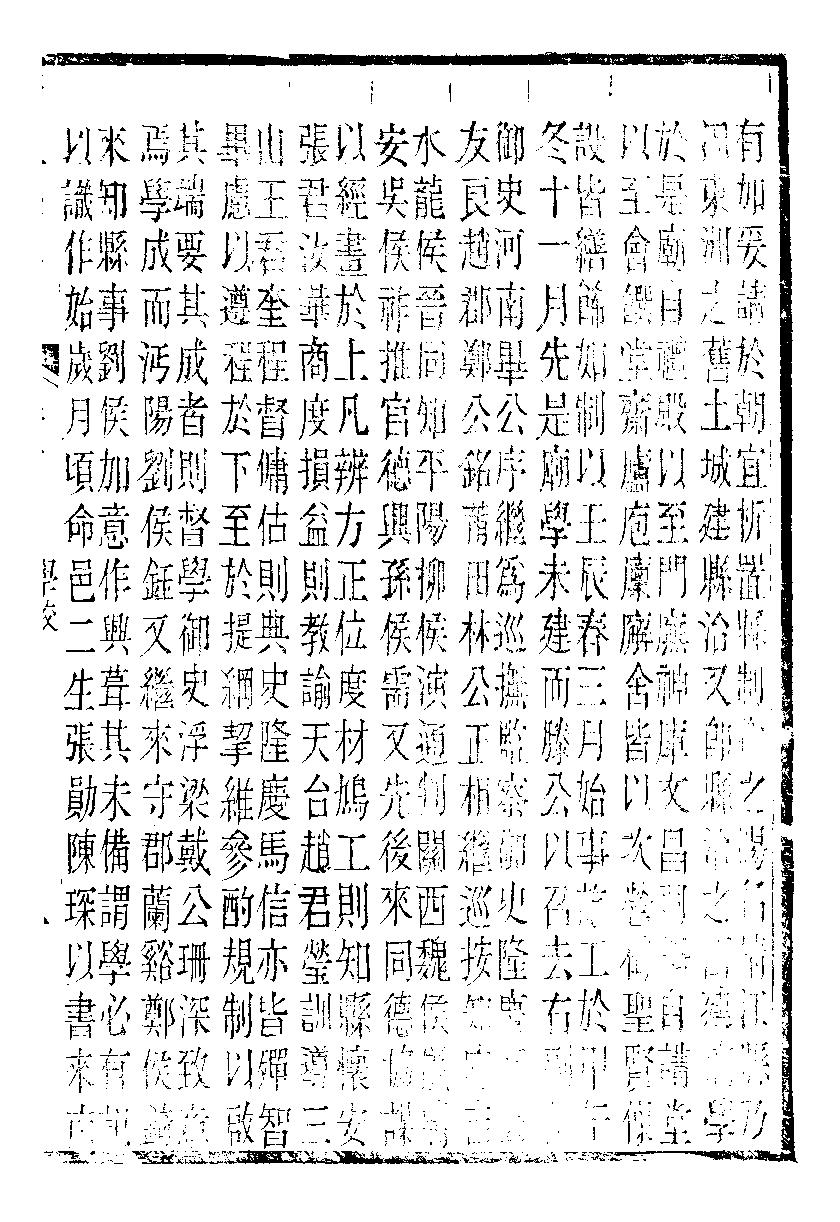 有如爰請於朝宜析置縣制之陽名清江縣乃
東洲之舊土城建縣治又卽縣治之西建學
於是廟自禮殿以至門廡神庫文昌祠自講堂
以至會饌堂齋廬庖廩廨舍皆以次聖賢像
設皆繕餙如制以壬辰春三月始事工於甲午
冬十一月先是廟學未建而滕公以召去右副
御史河南畢公序繼爲巡撫監察御史隆慶
友良趙郡鄭公銘莆田林公正相繼巡按知府
水龍侯晉同知平陽柳侯演通判關西魏侯
安吳侯祚推官德興孫侯需又先後來同德協謀
以經畫於上凡辨方正位度材鳩工則知縣懷安
張君汝華商度損益則教諭天台趙君瑩訓導三
山王君奎程督傭估則典史隆慶馬信亦皆殫智
畢慮以遵程於下至於提綱挈維參酌規制以啟
其端要其成者則督學御史浮梁戴公珊深致意
焉學成而沔陽劉侯鉦又繼來守郡蘭谿鄭侯
來知縣事劉侯加意作興葺其未備謂學必有
以識作始歲月頃命邑二生張勛陳琛以書來
學校